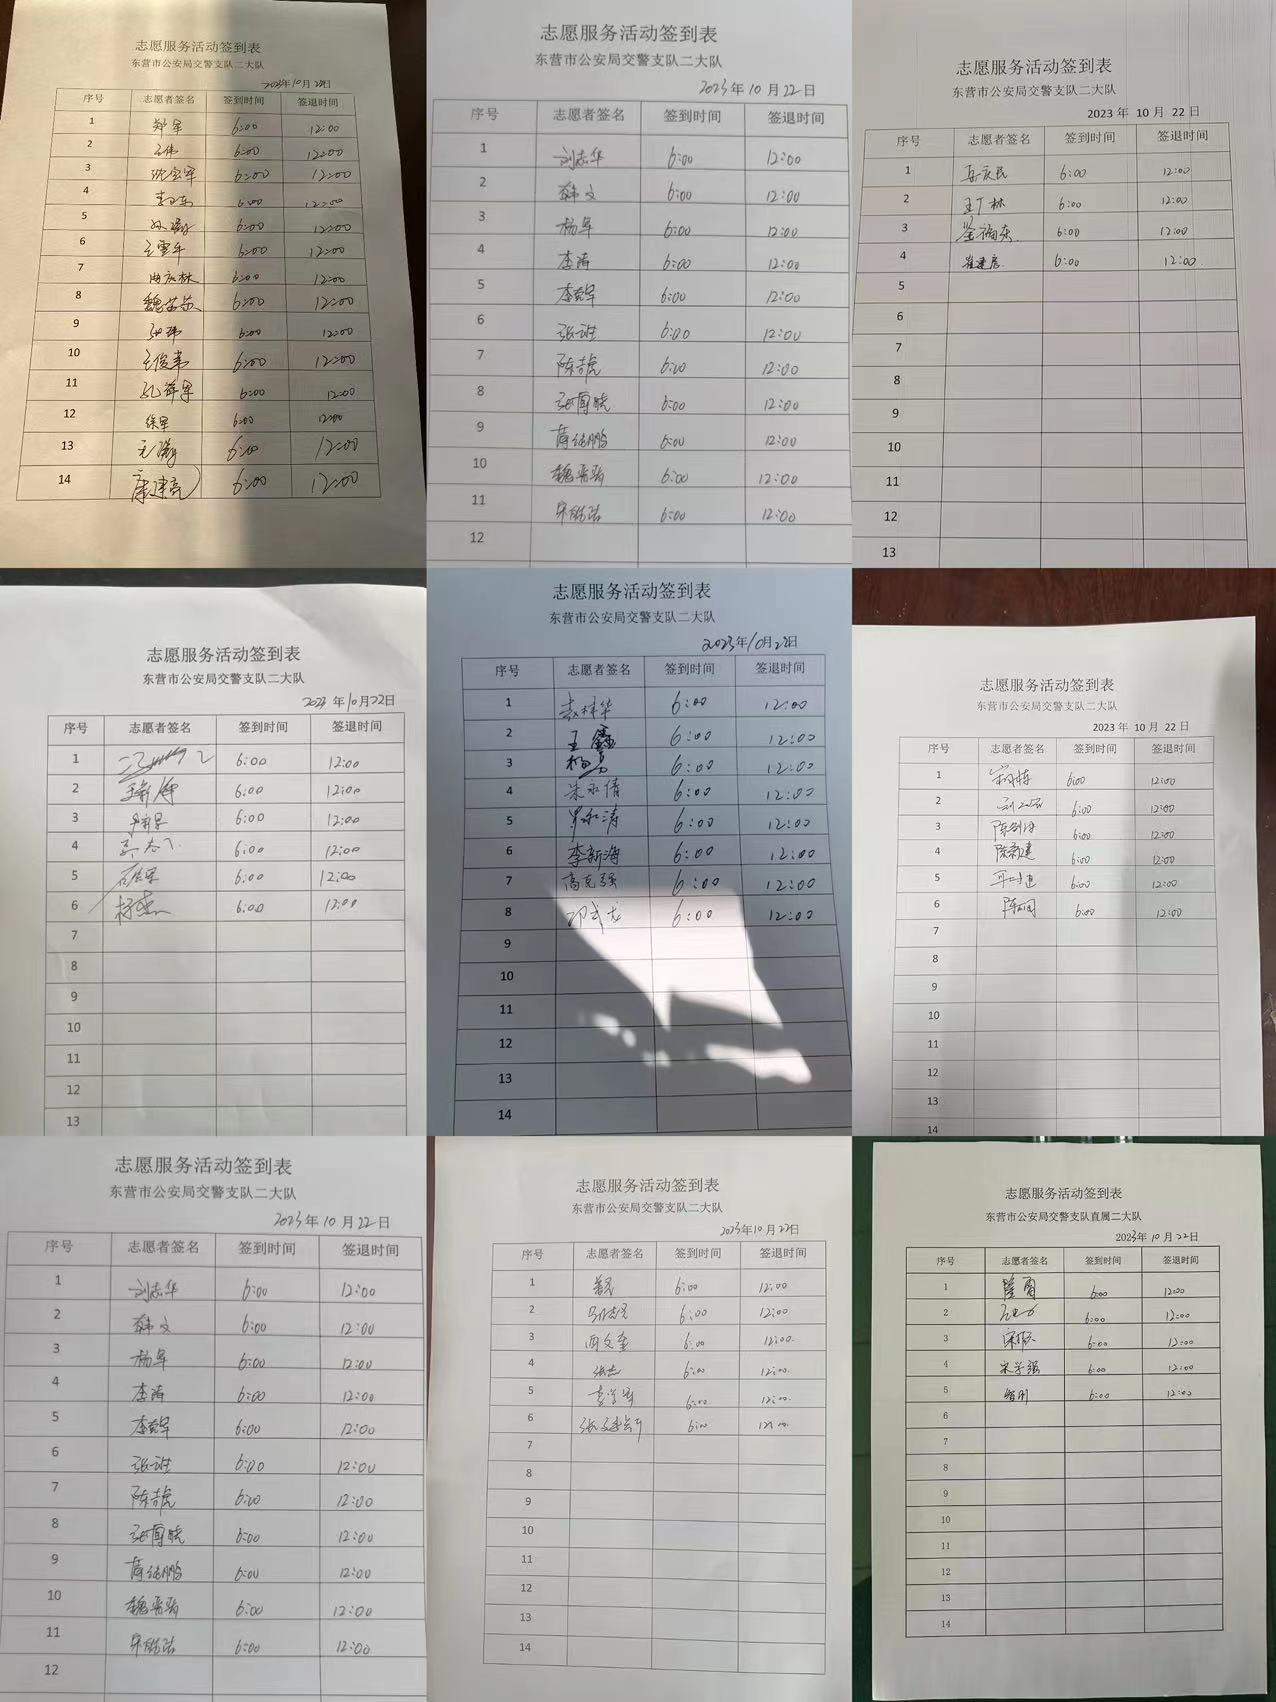 志愿服务活动签到表
东营市公安局交警支队二大队
2023年10月22日
序号 志愿者签名 签到时间 签退时间
1 郑军 6:00 12:00
2 王伟 6:00 12:00
3 6:00 12:00
4 6:00 12:00
5 6:00 12:00
6 王雪年 6:00 12:00
7 周庆林 6:00 12:00
8 6:00 12:00
9 张玮 6:00 12:00
10 王俊苇 6:00 12:00
11 孔祥军 6:00 12:00
12 徐军 6:00 12:00
13 6:00 12:00
14 康建亮 6:00 12:00
志愿服务活动签到表
东营市公安局交警支队二大队
2023年10月22日
序号 志愿者签名 签到时间 签退时间
1 刘志华 6:00 12:00
2 韩文 6:00 12:00
3 杨军 6:00 12:00
4 李涛 6:00 12:00
5 李克军 6:00 12:00
6 6:00 12:00
7 陈吉虎 6:00 12:00
8 6:00 12:00
9 6:00 12:00
10 6:00 12:00
11 6:00 12:00
12
志愿服务活动签到表
东营市公安局交警支队二大队
2023 年 10 月 22 日
序号 志愿者签名 签到时间 签退时间
1 6:00 12:00
2 王广林 6:00 12:00
3 6:00 12:00
4 6:00 12:00
5
6
7
8
9
10
11
12
13
志愿服务活动签到表
东营市公安局交警支队二大队
2023年10月22日
序号 志愿者签名 签到时间 签退时间
1 6:00 12:00
2 6:00 12:00
3 6:00 12:00
4 6:00 12:00
5 6:00 12:00
6 杨杰 6:00 12:00
7
8
9
10
11
12
13
志愿服务活动签到表
东营市公安局交警支队二大队
2023年10月22日
序号 志愿者签名 签到时间 签退时间
1 6:00 12:00
2 王鑫 6:00 12:00
3 杨勇 6:00 12:00
4 朱永倩 6:00 12:00
5 6:00 12:00
6 李新海 6:00 12:00
7 高克强 6:00 12:00
8 邓武龙 6:00 12:00
9
10
11
12
13
14
志愿服务活动签到表
东营市公安局交警支队二大队
2023 年 10 月 22 日
序号 志愿者签名 签到时间 签退时间
1 6:00 12:00
2 6:00 12:00
3 6:00 12:00
4 陈新建 6:00 12:00
5 6:00 12:00
6 6:00 12:00
7
8
9
10
11
12
13
14
志愿服务活动签到表
东营市公安局交警支队二大队
2023年10月22日
序号 志愿者签名 签到时间 签退时间
1 刘志华 6:00 12:00
2 韩文 6:00 12:00
3 杨军 6:00 12:00
4 李涛 6:00 12:00
5 李克军 6:00 12:00
6 6:00 12:00
7 陈吉虎 6:00 12:00
8 6:00 12:00
9 6:00 12:00
10 6:00 12:00
11 6:00 12:00
12
志愿服务活动签到表
东营市公安局交警支队二大队
2023年10月22日
序号 志愿者签名 签到时间 签退时间
1 6:00 12:00
2 6:00 12:00
3 周文奎 6:00 12:00
4 张杰 6:00 12:00
5 6:00 12:00
6 6:00 12:00
7
8
9
10
11
12
13
14
志愿服务活动签到表
东营市公安局交警支队直属二大队
2023年10月22日
序号 志愿者签名 签到时间 签退时间
1 6:00 12:00
2 6:00 12:00
3 6:00 12:00
4 宋学强 6:00 12:00
5 6:00 12:00
6
7
8
9
10
11
12
13
14